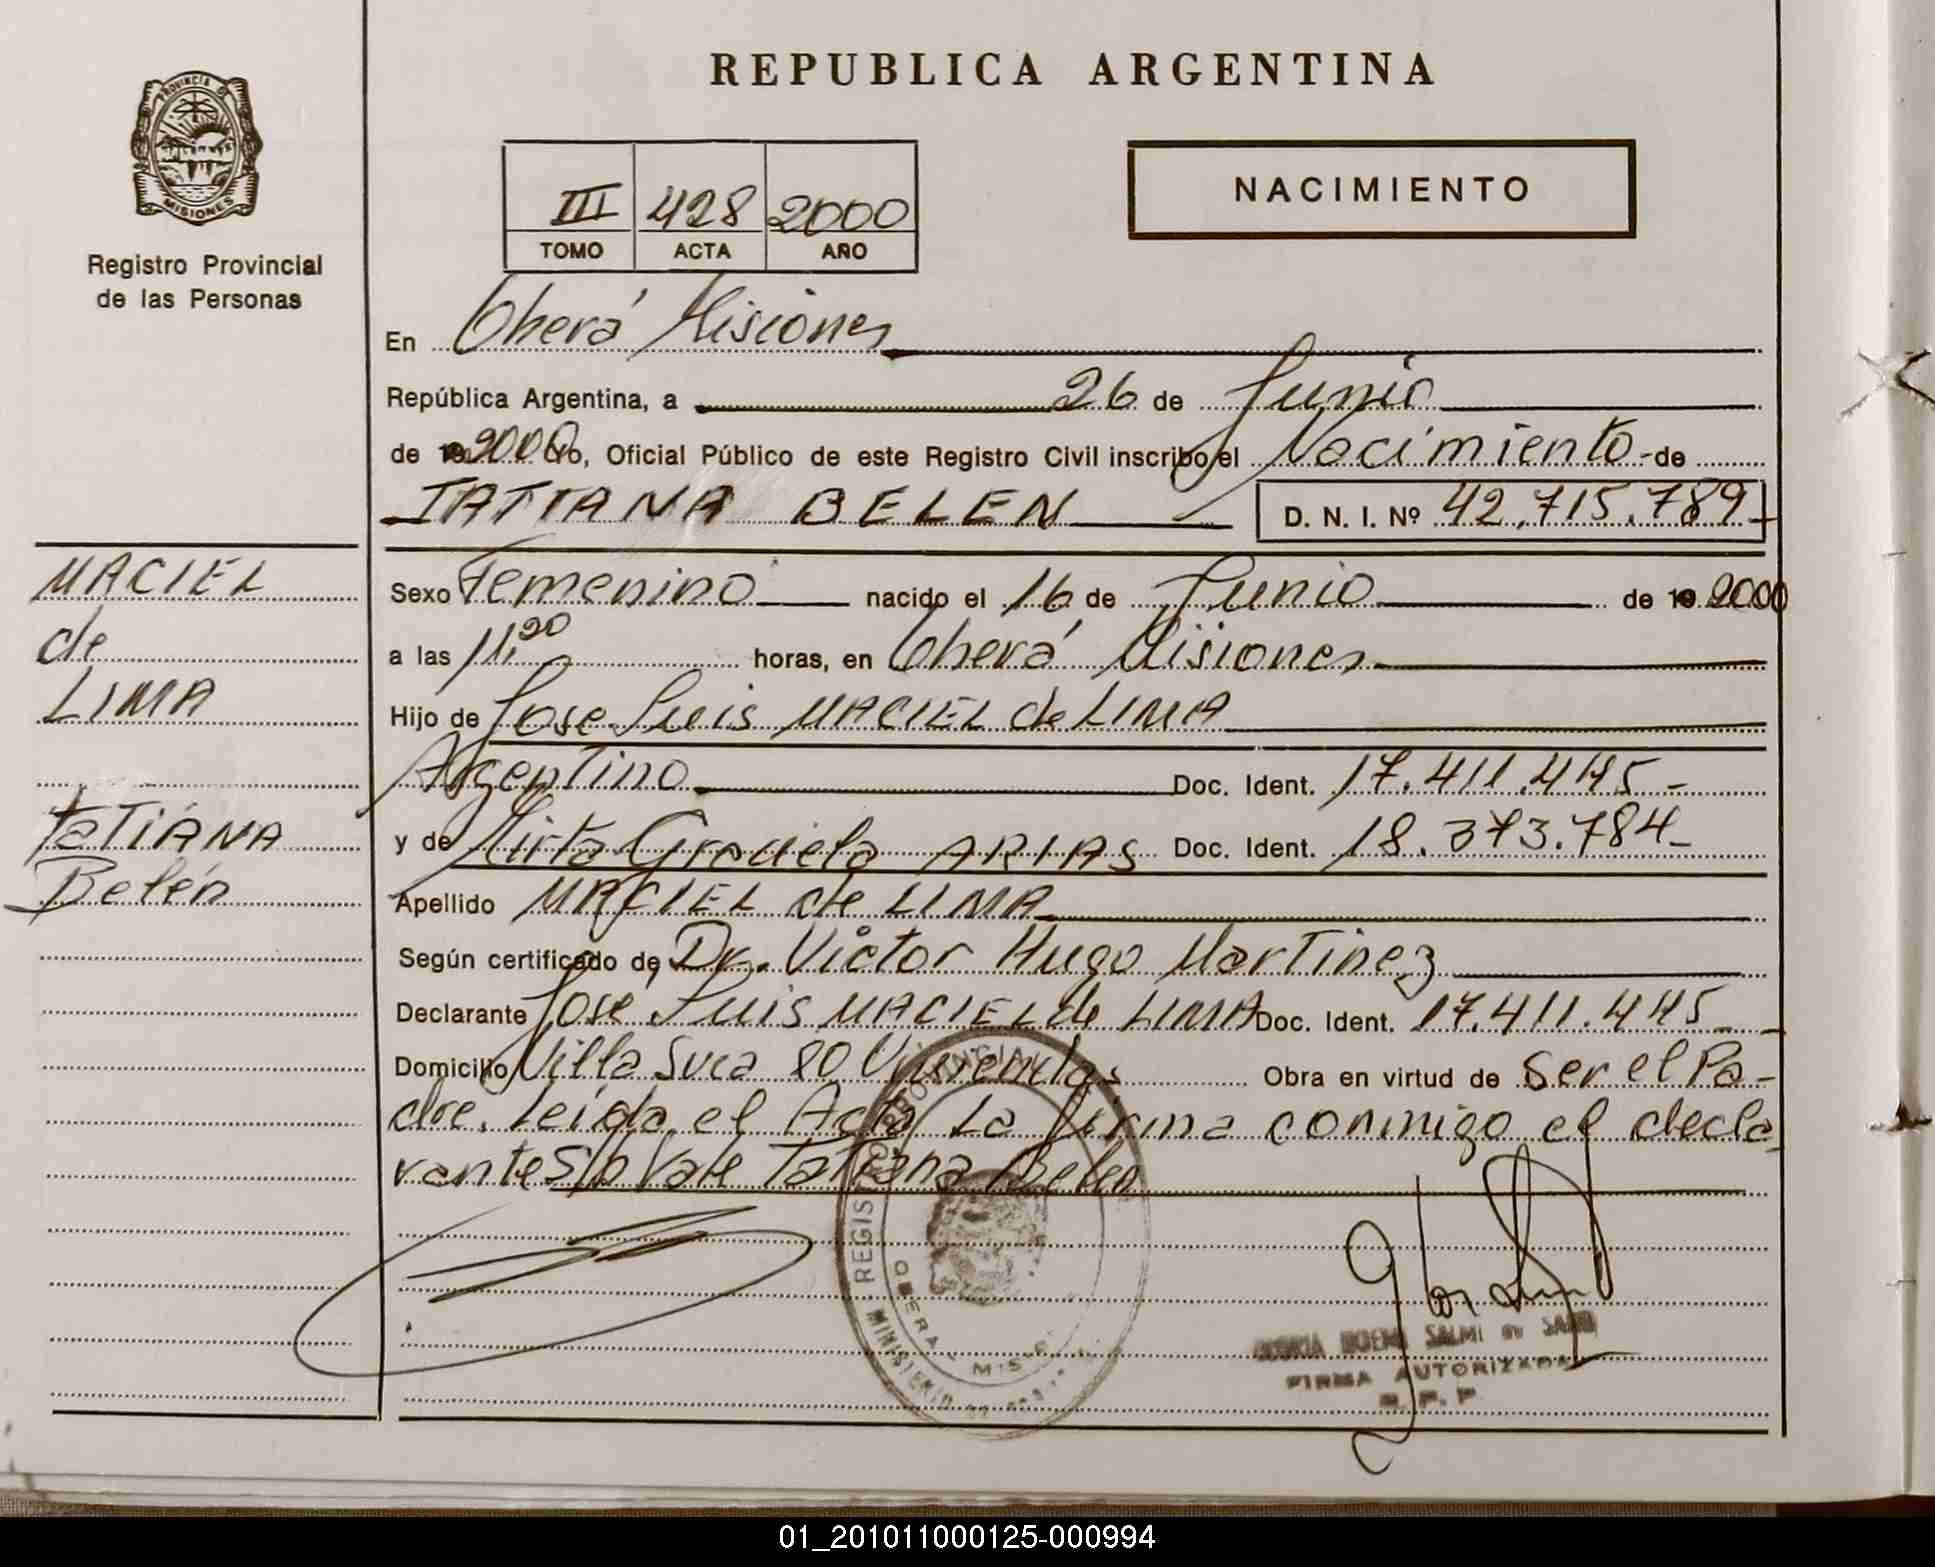 REPUBLICA ARGENTINA
PROVINCIA DE MISIONES
Registro Provincial
de las Personas
III 428 2000
TOMO ACTA AÑO
NACIMIENTO
En Oberá Misiones
República Argentina, a 26 de Junio
de 192000 Yo, Oficial Público de este Registro Civil inscribo el Nacimiento de
TATIANA BELEN D. N. I. Nº 42.715.789
MACIEL
de
LIMA
Tatiana
Belén
Sexo Femenino nacido el 16 de Junio de 19 2000
a las 11,20 horas, en Oberá Misiones
Hijo de Jose Luis MACIEL de LIMA
Argentino Doc. Ident. 17.411.445-
y de Mirta Graciela ARIAS Doc. Ident. 18.373.784-
Apellido MACIEL de LIMA
Según certificado de, Dr. Victor Hugo Martinez
Declarante Jose Luis MACIEL de LIMA Doc. Ident. 17.411.445
Domicilio Villa Svea 80 Viviendas Obra en virtud de Ser el Pa-
dre. Leida el Acta La firma conmigo el decla
rante S/b Vale Tatiana Belen
REGISTRO PROVINCIAL
OBERA - MIS
MINISTERIO
SALMI
FIRMA AUTORIZADA
R. P. P
01_201011000125-000994